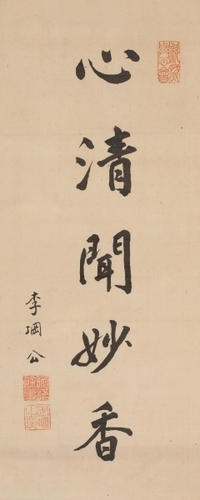 心清聞妙香
李岡公